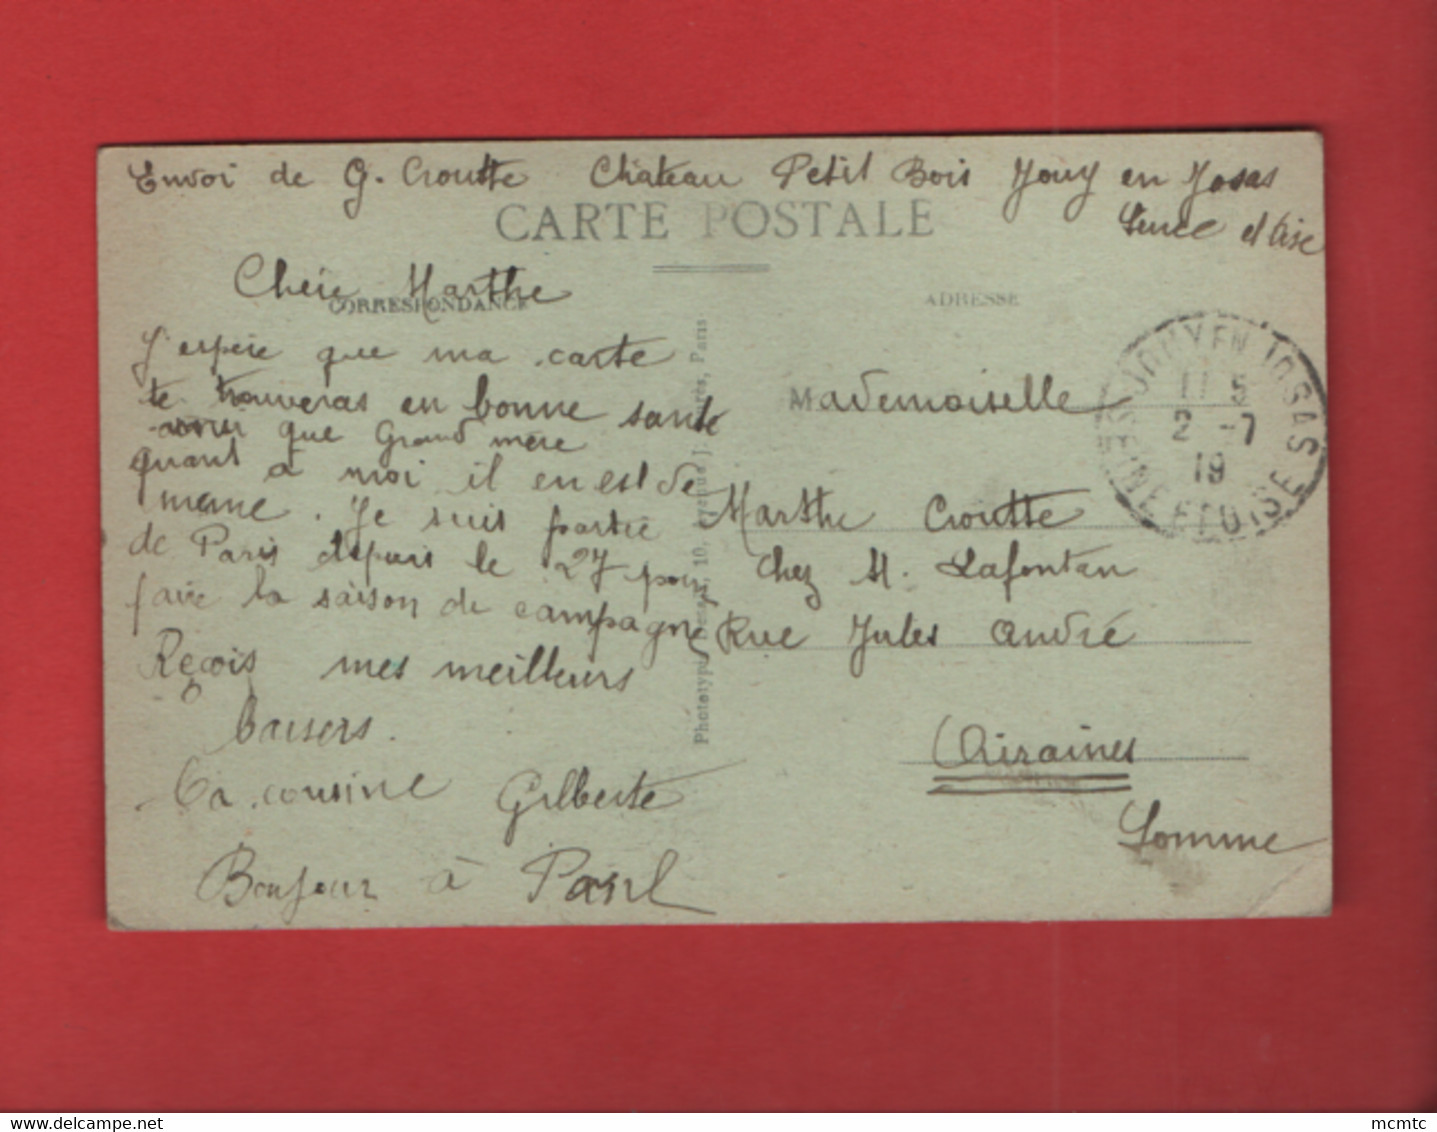 Envoi de G. Croutte Château Petit Bois Jouy en Josas
Seine et Oise
CARTE POSTALE
CORRESPONDANCE
ADRESSE
Chère Marthe
J'espère que ma carte
te trouveras en bonne santé
que Grand mère
quant à moi il en est de
meme. Je suis partie
de Paris depuis le 27 pour
faire la saison de campagne
Reçois mes meilleurs
baisers.
Ta cousine Gilberte
Bonjour à Paul
Phototypie 10, Avenue J. Paris
Mademoiselle
Marthe Croutte
chez M. Lafontan
Rue Jules André
Airaines
Somme
JOUY EN JOSAS
11 5
2 -7
19
SEINE ET OISE
www.delcampe.net
mcmtc